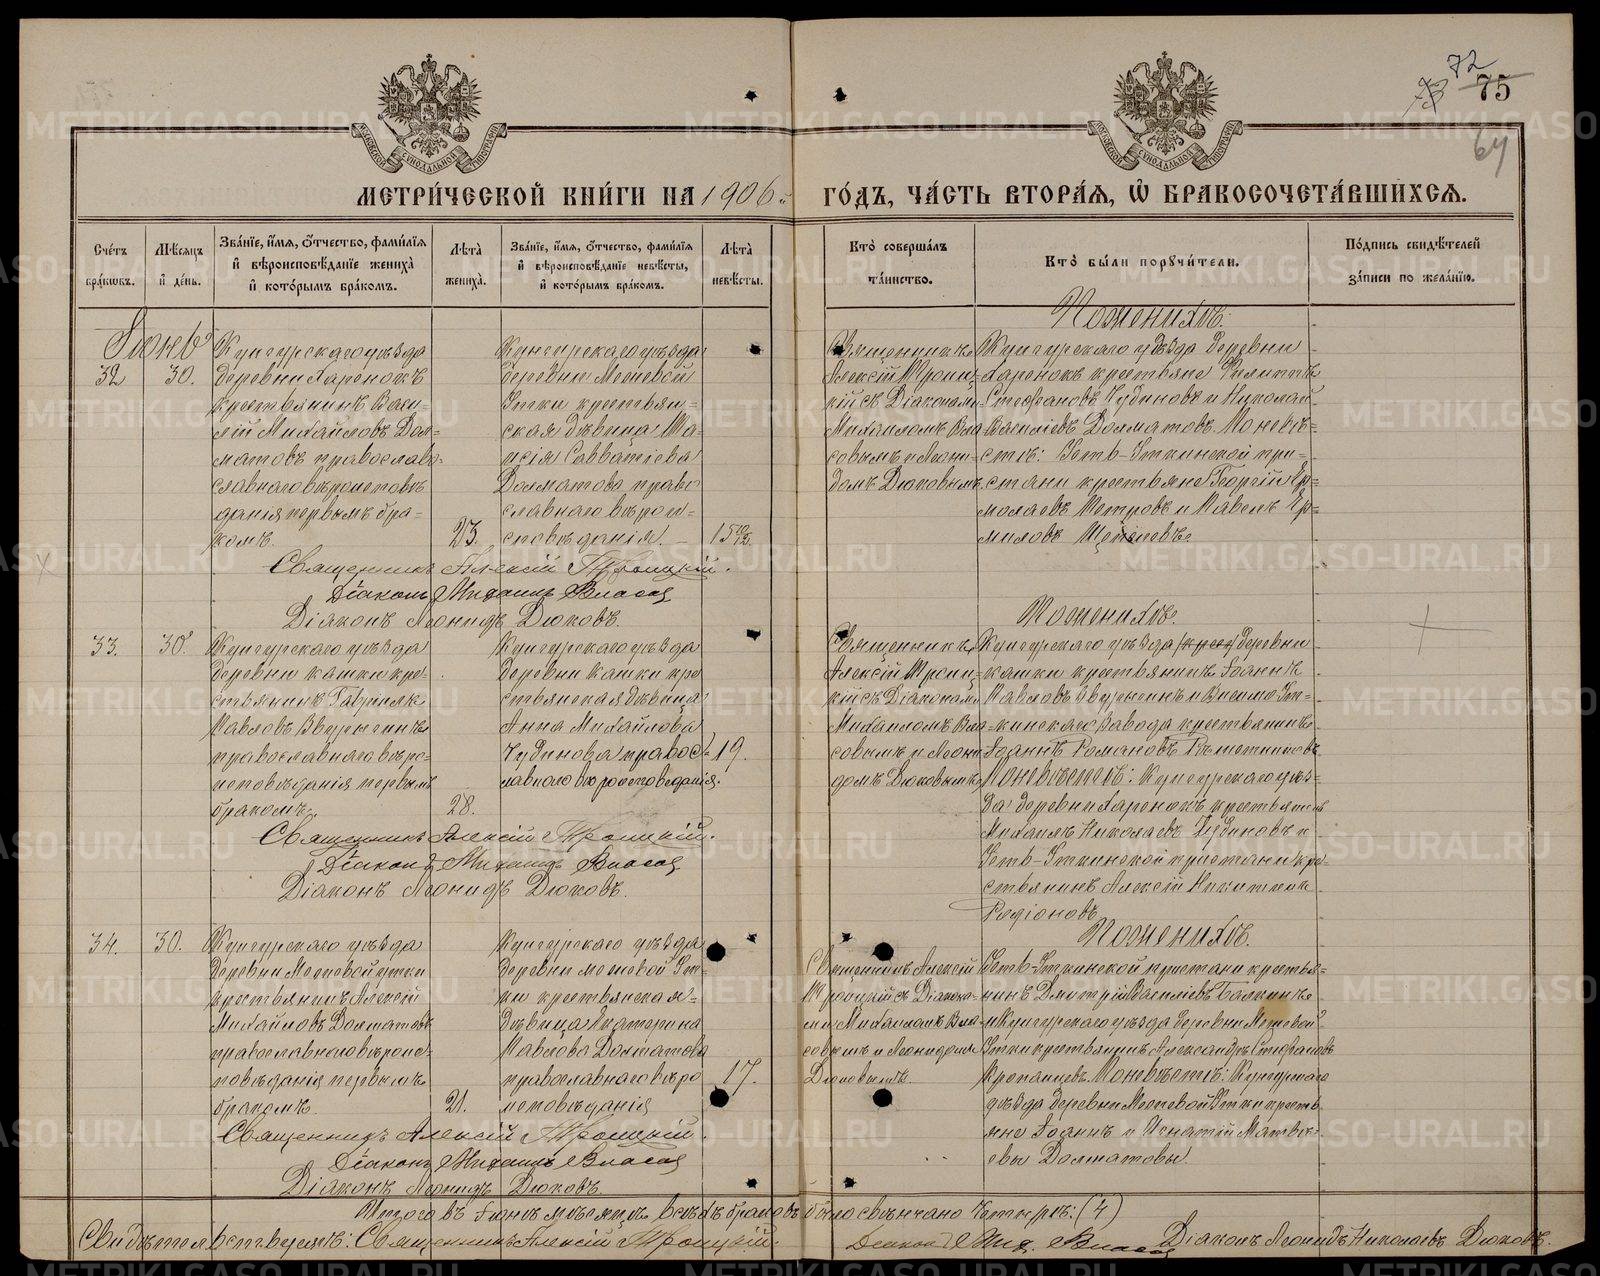 72
73 75
64
МЕТРИ́ЧЕСКОЙ КНИ́ГИ НА 1906 ГО́ДЪ, ЧА́СТЬ ВТОРА́Я, Ѡ҆ БРАКОСОЧЕТА́ВШИХСЯ.
Сче́тъ бра́кѡвъ.
Мѣ́сяцъ и҆ де́нь.
Зва́нїе, и҆́мя, ѻ҆́тчество, фами́лїя и҆ вѣроисповѣ́данїе жениха̀ и҆ кото́рымъ бра́комъ.
Лѣта̀ жениха̀.
Зва́нїе, и҆́мя, ѻ҆́тчество, фами́лїя и҆ вѣроисповѣ́данїе невѣ́сты, и҆ кото́рымъ бра́комъ.
Лѣта̀ невѣ́сты.
Кто̀ соверша́лъ та́инство.
Кто̀ бы́ли порꙋчи́тели.
По́дпись свидѣ́телей за́писи по жела́нїю.
Іюнь
32 30.
Кунгурскаго уѣзда
деревни Харенокъ
крестьянинъ Васи-
лій Михайловъ Дол-
матовъ православ-
славнаго вѣроисповѣ
данія первымъ бра-
комъ.
23.
Кунгурскаго уѣзда
деревни Межевой
Утки крестьян-
ская дѣвица
Савватіева
Долматова право
славнаго вѣрои-
сповѣданія.
15
Священникъ
Алексій Троиц-
кій съ Діаконами
Михаиломъ Вла-
совымъ и Леони-
домъ Дюковымъ.
По женихѣ:
Кунгурскаго уѣзда деревни
Харенокъ крестьяне Филиппъ
Стефановъ Чудиновъ и Николай
Василіевъ Долматовъ. По невѣ-
стѣ: Усть-Уткинской при-
стани крестьяне Георгій Ер-
молаевъ Петровъ и Павелъ
Священникъ Алексій Троицкій.
Діаконъ Михаилъ Власов
Діаконъ Леонидъ Дюковъ.
33. 30.
Кунгурскаго уѣзда
деревни Кашки кре-
стьянинъ Гавріилъ
Павловъ
православнаго вѣро-
исповѣданія первымъ
бракомъ.
28.
Кунгурскаго уѣзда
деревни Кашки кре
стьянская дѣвица
Анна Михайлова
Чудинова правос-
лавнаго вѣроисповѣданія.
19.
Священникъ
Алексій Троиц-
кій съ Діаконами
Михаиломъ Вла-
совымъ и Леони-
домъ Дюковымъ
По женихѣ.
Кунгурскаго уѣзда деревни
Кашки крестьянинъ Іоаннъ
Павловъ и Висимо-Ут-
кинскаго Завода крестьянинъ
Іоаннъ Романовъ
По невѣстѣ: Кунгурскаго уѣз-
да деревни Харенокъ крестьянинъ
Михаилъ Николаевъ Чудиновъ и
Усть-Уткинской пристани кре-
стьянинъ Алексій Никитинъ
Родіоновъ
Священникъ Алексій Троицкій.
Діаконъ Михаилъ Власов
Діаконъ Леонидъ Дюковъ.
34. 30.
Кунгурскаго уѣзда
деревни Межевой утки
крестьянинъ Алексій
Михайловъ Долматовъ
православнаго вѣроис-
повѣданія первымъ
бракомъ.
21.
Кунгурскаго уѣзда
деревни межевой Ут-
ки крестьянская
дѣвица Екатерина
Павлова Долматова
православнаго вѣро
исповѣданія
17.
Священникъ Алексій
Троицкій съ Діакона-
ми Михаиломъ Вла-
совымъ и Леонидомъ
Дюковымъ.
По женихѣ.
Усть-Уткинской пристани крестья-
нинъ Дмитрій Василіевъ Балкинъ
и Кунгурскаго уѣзда деревни Межевой
Утки крестьянинъ Александръ Стефановъ
По невѣстѣ: Кунгурскаго
уѣзда деревни Межевой Утки кресть
яне Іоаннъ и Игнатій Матвѣ-
евы Долматовы.
Священникъ Алексій Троицкій.
Діаконъ Михаилъ Власов
Діаконъ Леонидъ Дюковъ.
Итого въ Іюнѣ мѣсяцѣ всѣхъ браковъ было свѣнчано четыре: (4)
Свидѣтельствуемъ: Священникъ Алексій Троицкій. Діаконъ Мих. Власов Діаконъ Леонидъ Николаевъ Дюковъ.
METRIKI.GASO-URAL.RU